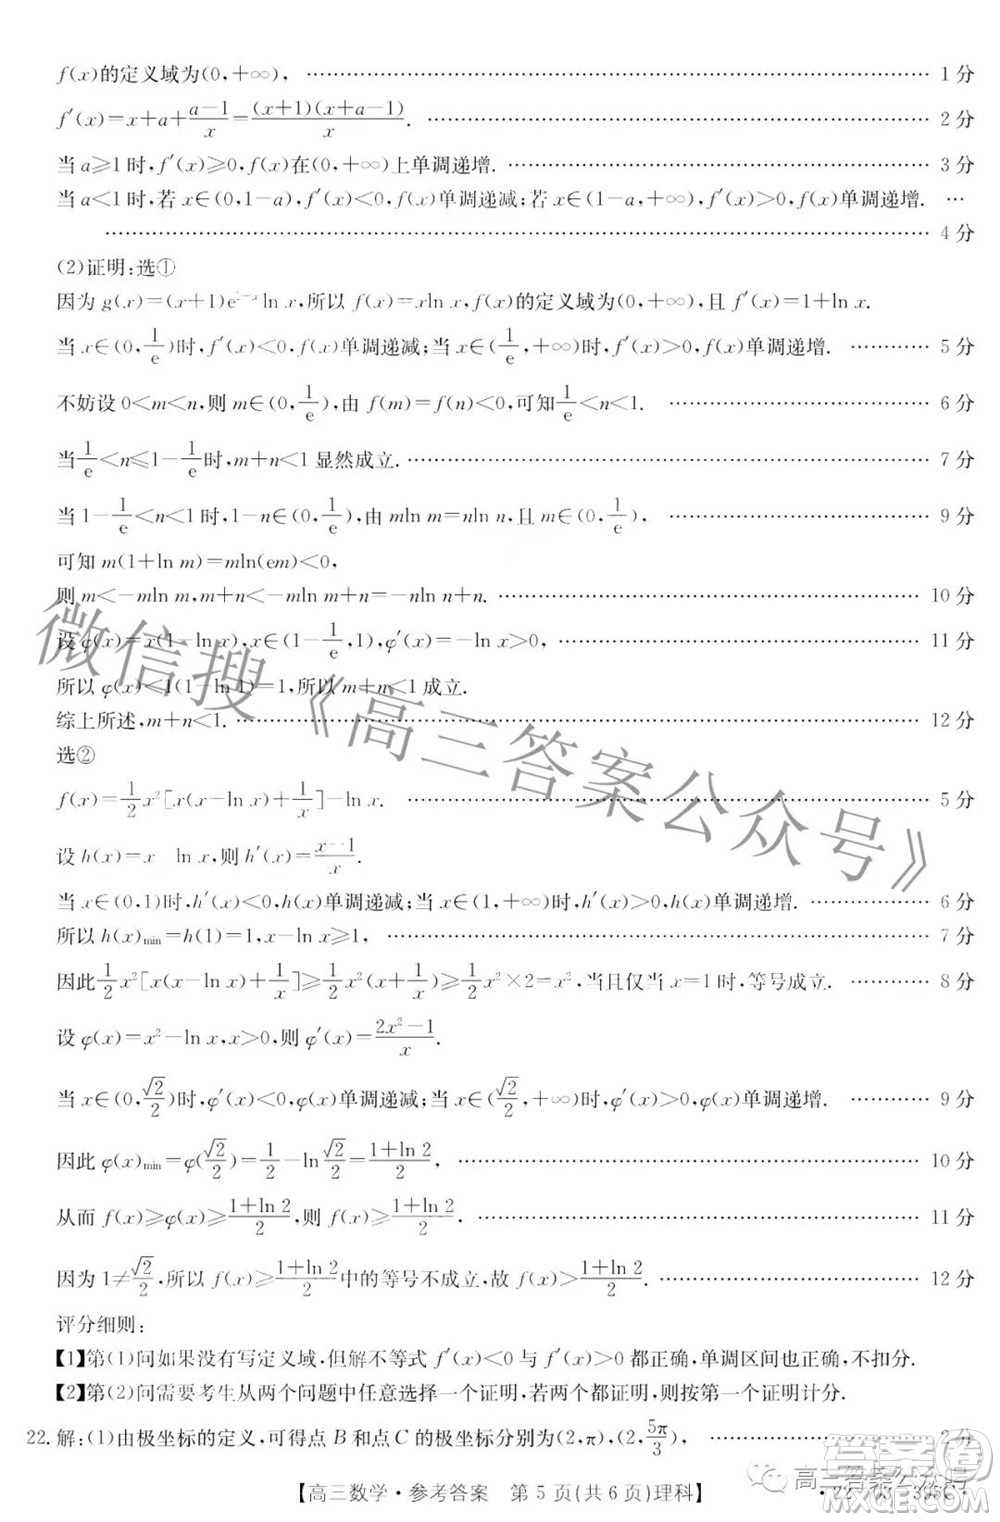 f(x)的定义域为(0,+∞), …… 1分
f′(x)=x+a+(a-1)/x=(x+1)(x+a-1)/x. …… 2分
当a≥1时,f′(x)≥0,f(x)在(0,+∞)上单调递增. …… 3分
当a<1时,若x∈(0,1-a),f′(x)<0,f(x)单调递减;若x∈(1-a,+∞),f′(x)>0,f(x)单调递增. …
…… 4分
(2)证明:选①
因为g(x)=(x+1)e ln x,所以f(x)=xln x,f(x)的定义域为(0,+∞),且f′(x)=1+ln x.
当x∈(0,1/e)时,f′(x)<0,f(x)单调递减;当x∈(1/e,+∞)时,f′(x)>0,f(x)单调递增. …… 5分
不妨设0<m<n,则m∈(0,1/e),由f(m)=f(n)<0,可知1/e<n<1. …… 6分
当1/e<n≤1-1/e时,m+n<1显然成立. …… 7分
当1-1/e<n<1时,1-n∈(0,1/e),由mln m=nln n,且m∈(0,1/e), …… 9分
可知m(1+ln m)=mln(em)<0,
则m<-mln m,m+n<-mln m+n=-nln n+n. …… 10分
设φ(x)=x(1-ln x),x∈(1-1/e,1),φ′(x)=-ln x>0, …… 11分
所以φ(x)<1(1-ln 1)=1,所以m+n<1成立.
综上所述,m+n<1. …… 12分
选②
f(x)=1/2x²[x(x-ln x)+1/x]-ln x. …… 5分
设h(x)=x ln x,则h′(x)=(x-1)/x.
当x∈(0,1)时,h′(x)<0,h(x)单调递减;当x∈(1,+∞)时,h′(x)>0,h(x)单调递增. …… 6分
所以h(x)min=h(1)=1,x-ln x≥1, …… 7分
因此1/2x²[x(x-ln x)+1/x]≥1/2x²(x+1/x)≥1/2x²×2=x²,当且仅当x=1时,等号成立. …… 8分
设φ(x)=x²-ln x,x>0,则φ′(x)=(2x²-1)/x.
当x∈(0,√2/2)时,φ′(x)<0,φ(x)单调递减;当x∈(√2/2,+∞)时,φ′(x)>0,φ(x)单调递增. …… 9分
因此φ(x)min=φ(√2/2)=1/2-ln√2/2=(1+ln 2)/2, …… 10分
从而f(x)≥φ(x)≥(1+ln 2)/2,则f(x)≥(1+ln 2)/2. …… 11分
因为1≠√2/2,所以f(x)≥(1+ln 2)/2中的等号不成立,故f(x)>(1+ln 2)/2. …… 12分
评分细则:
【1】第(1)问如果没有写定义域,但解不等式f′(x)<0与f′(x)>0都正确,单调区间也正确,不扣分.
【2】第(2)问需要考生从两个问题中任意选择一个证明,若两个都证明,则按第一个证明计分.
22.解:(1)由极坐标的定义,可得点B和点C的极坐标分别为(2,π),(2,5π/3), …… 2分
【高三数学·参考答案 第5页(共6页)理科】
微信搜《高三答案公众号》
高三答案公众号